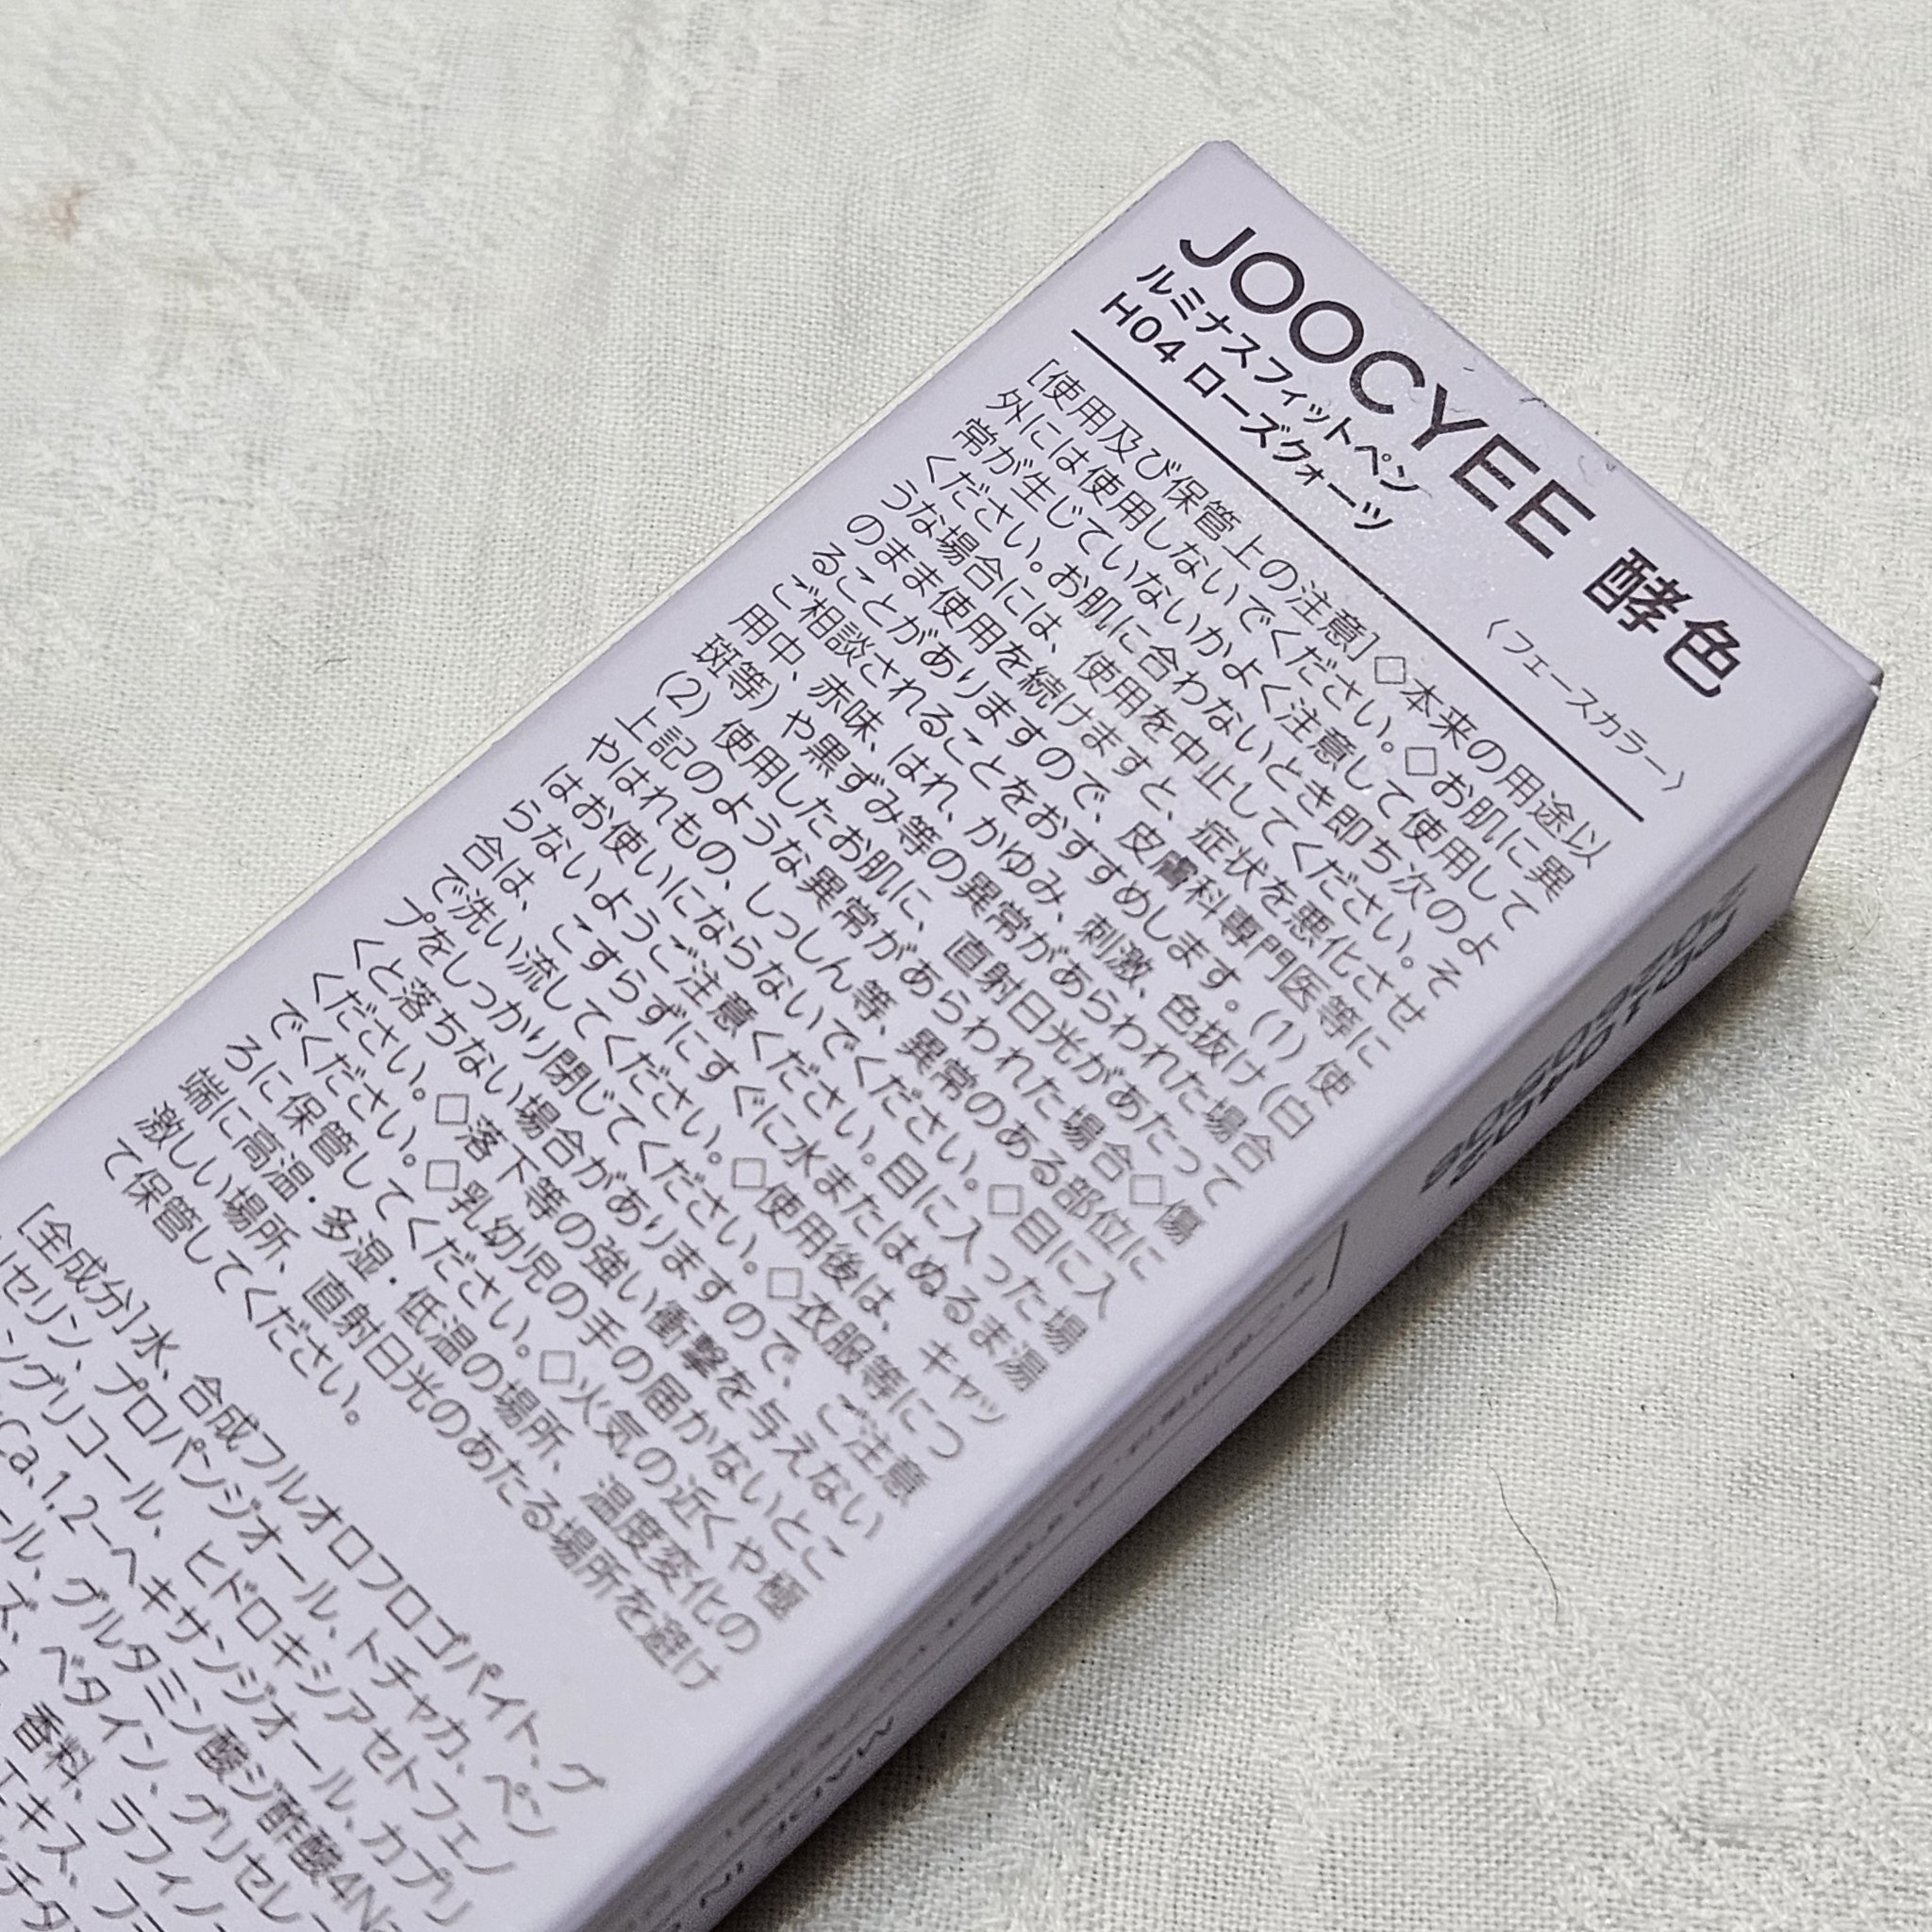 JOOCYEE 酵色
ルミナスフィットペン
〈フェースカラー〉
H04 ローズクォーツ
[使用及び保管上の注意]◇本来の用途以
外には使用しないでください。◇お肌に異
常が生じていないかよく注意して使用して
ください。お肌に合わないとき即ち次のよ
うな場合には、使用を中止してください。そ
のまま使用を続けますと、症状を悪化させ
ることがありますので、皮膚科専門医等に
ご相談されることをおすすめします。(1) 使
用中、赤味、はれ、かゆみ、刺激、色抜け(白
斑等) や黒ずみ等の異常があらわれた場合
(2) 使用したお肌に、直射日光があたって
上記のような異常があらわれた場合◇傷
やはれもの、しっしん等、異常のある部位に
はお使いにならないでください。◇目に入
らないようご注意ください。目に入った場
合は、こすらずにすぐに水またはぬるま湯
で洗い流してください。◇使用後は、キャッ
プをしっかり閉じてください。◇衣服等につ
くと落ちない場合がありますので、ご注意
ください。◇落下等の強い衝撃を与えない
でください。◇乳幼児の手の届かないとこ
ろに保管してください。◇火気の近くや極
端に高温・多湿・低温の場所、温度変化の
激しい場所、直射日光のあたる場所を避け
て保管してください。
[全成分]水、合成フルオロフロゴパイト、グ
リセリン、プロパンジオール、トチャカ、ペン
ングリコール、ヒドロキシアセトフェノ
Ca、1,2-ヘキサンジオール、カプリ
ール、グルタミン酸ジ酢酸4Na
ズ、ベタイン、グリセレ
香料、ラフィノ
エキス、フ